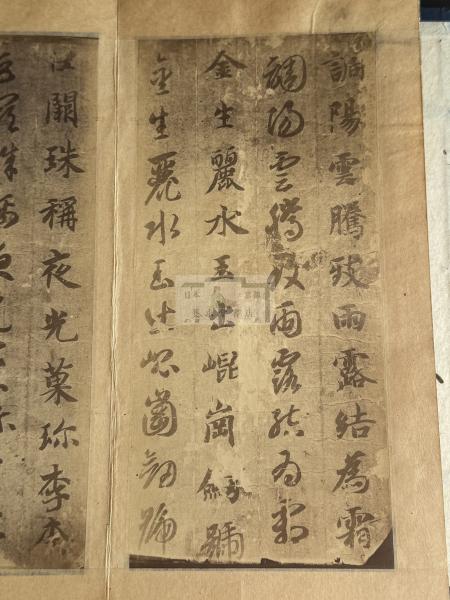 調陽雲騰致雨露結為霜
調陽雲騰致雨露結為霜
金生麗水玉出崐崗劍號
金生麗水玉出崐崗劍號
巨闕珠稱夜光菓珍李柰
日本